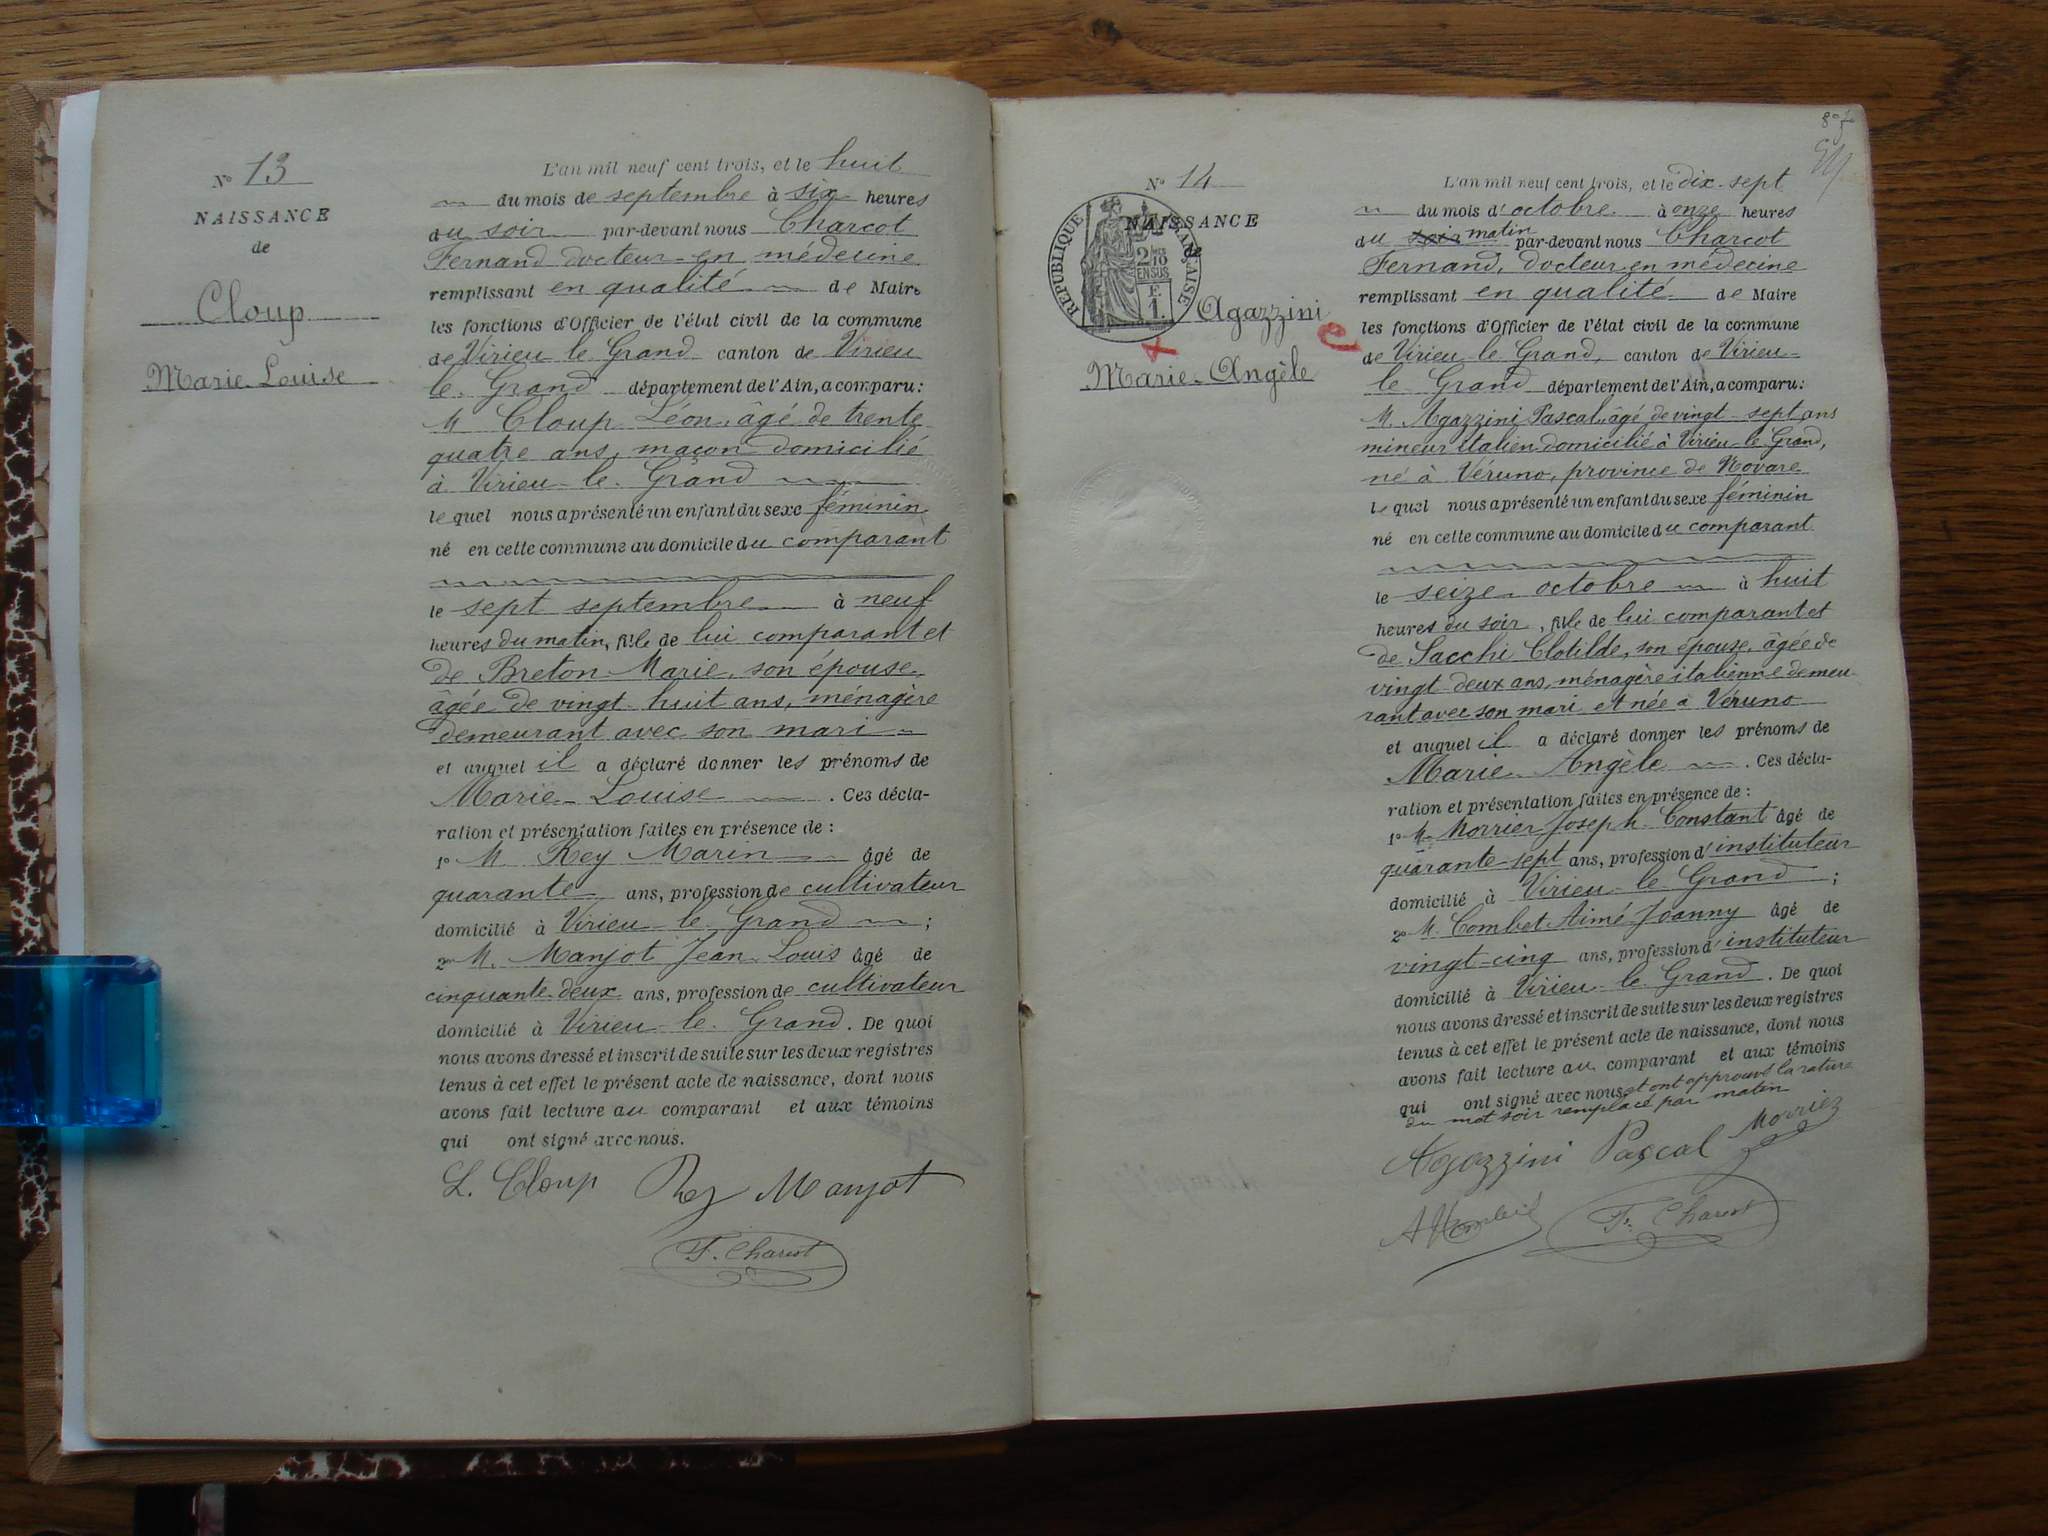 No 13
NAISSANCE
de
Cloup
Marie Louise
L'an mil neuf cent trois, et le huit
du mois de septembre à six heures
du soir par-devant nous Charcot
Fernand docteur en médecine
remplissant en qualité de Maire
les fonctions d'Officier de l'état civil de la commune
de Virieu le Grand canton de Virieu
le Grand département de l'Ain, a comparu:
M Cloup Léon, âgé de trente
quatre ans, maçon domicilié
à Virieu le Grand
lequel nous a présenté un enfant du sexe féminin
né en cette commune au domicile du comparant
le sept septembre à neuf
heures du matin, fille de lui comparant et
de Breton Marie, son épouse,
âgée de vingt huit ans, ménagère
demeurant avec son mari
et auquel il a déclaré donner les prénoms de
Marie Louise . Ces décla-
ration et présentation faites en présence de :
1° M Rey Marin âgé de
quarante ans, profession de cultivateur
domicilié à Virieu le Grand ;
2° M. Manjot Jean Louis âgé de
cinquante deux ans, profession de cultivateur
domicilié à Virieu le Grand. De quoi
nous avons dressé et inscrit de suite sur les deux registres
tenus à cet effet le présent acte de naissance, dont nous
avons fait lecture au comparant et aux témoins
qui ont signé avec nous.
L. Cloup Rey Manjot
F. Charcot
No 14
NAISSANCE
de
REPUBLIQUE FRANÇAISE
2/10
EN SUS
E.
1.
Agazzini
Marie-Angèle
L'an mil neuf cent trois, et le dix-sept
du mois d'octobre à onze heures
du soir matin par-devant nous Charcot
Fernand, Docteur en médecine
remplissant en qualité de Maire
les fonctions d'Officier de l'état civil de la commune
de Virieu le Grand, canton de Virieu-
le Grand département de l'Ain, a comparu:
M. Agazzini Pascal, âgé de vingt-sept ans
mineur italien domicilié à Virieu-le-Grand,
né à Véruno, province de Novare
lequel nous a présenté un enfant du sexe féminin
né en cette commune au domicile du comparant
le seize octobre à huit
heures du soir, fille de lui comparant et
de Sacchi Clotilde, son épouse, âgée de
vingt deux ans, ménagère italienne demeu-
rant avec son mari et née à Véruno
et auquel il a déclaré donner les prénoms de
Marie Angèle . Ces décla-
ration et présentation faites en présence de :
1° M. Morrier Joseph Constant âgé de
quarante-sept ans, profession d'instituteur
domicilié à Virieu le Grand ;
2° M. Combet Aimé Joanny âgé de
vingt-cinq ans, profession d'instituteur
domicilié à Virieu le Grand. De quoi
nous avons dressé et inscrit de suite sur les deux registres
tenus à cet effet le présent acte de naissance, dont nous
avons fait lecture au comparant et aux témoins
qui ont signé avec nous et ont approuvé la rature
du mot soir remplacé par matin
Agazzini Pascal Morrier
F. Charcot